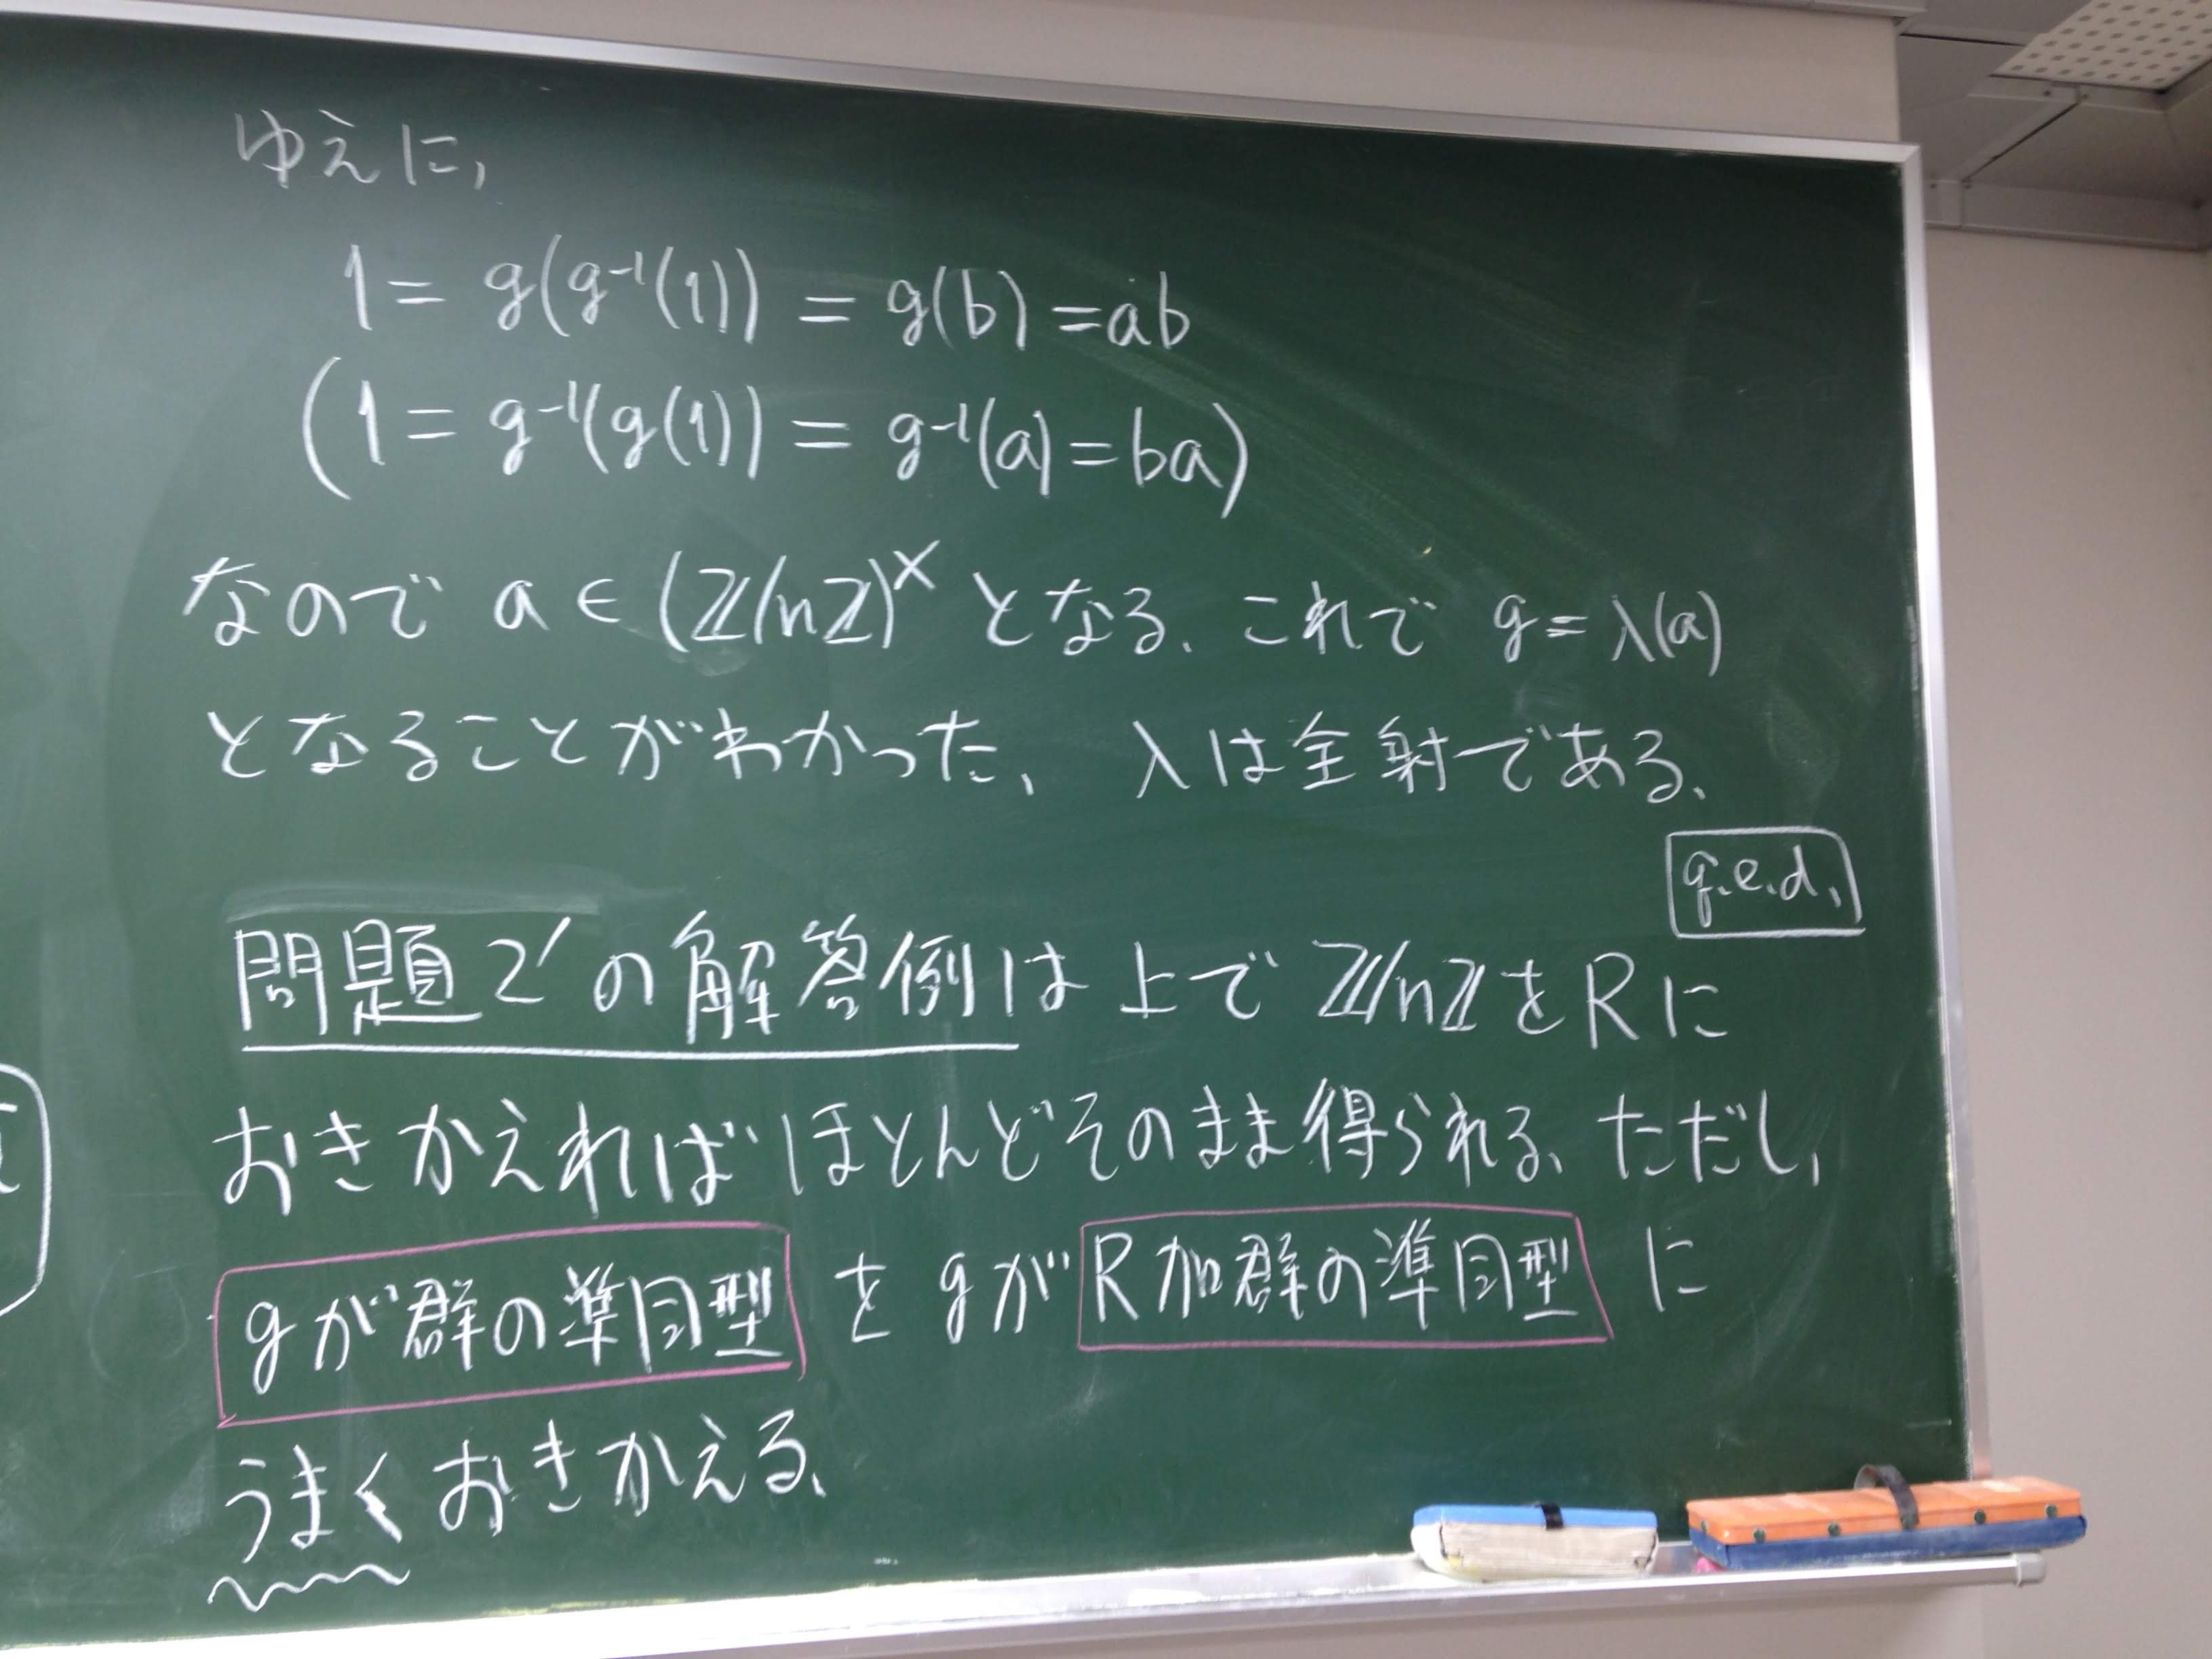 ゆえに,
1 = g(g⁻¹(1)) = g(b) = ab
(1 = g⁻¹(g(1)) = g⁻¹(a) = ba)
なので a ∈ (ℤ/nℤ)^× となる. これで g = λ(a)
となることがわかった. λは全射である.
q.e.d.
問題2′の解答例は上で ℤ/nℤをRに
おきかえればほとんどそのまま得られる. ただし,
gが群の準同型 を gが R加群の準同型 に
うまくおきかえる.